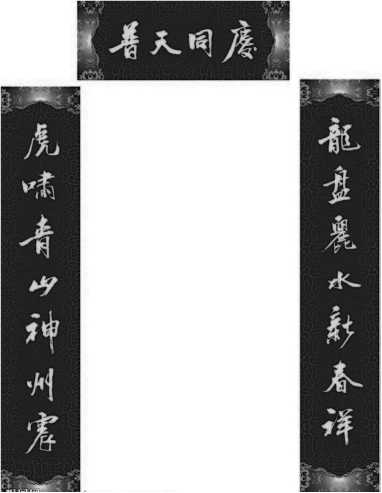 普天同慶
龍盘麗水新春祥
虎嘯青山神州震